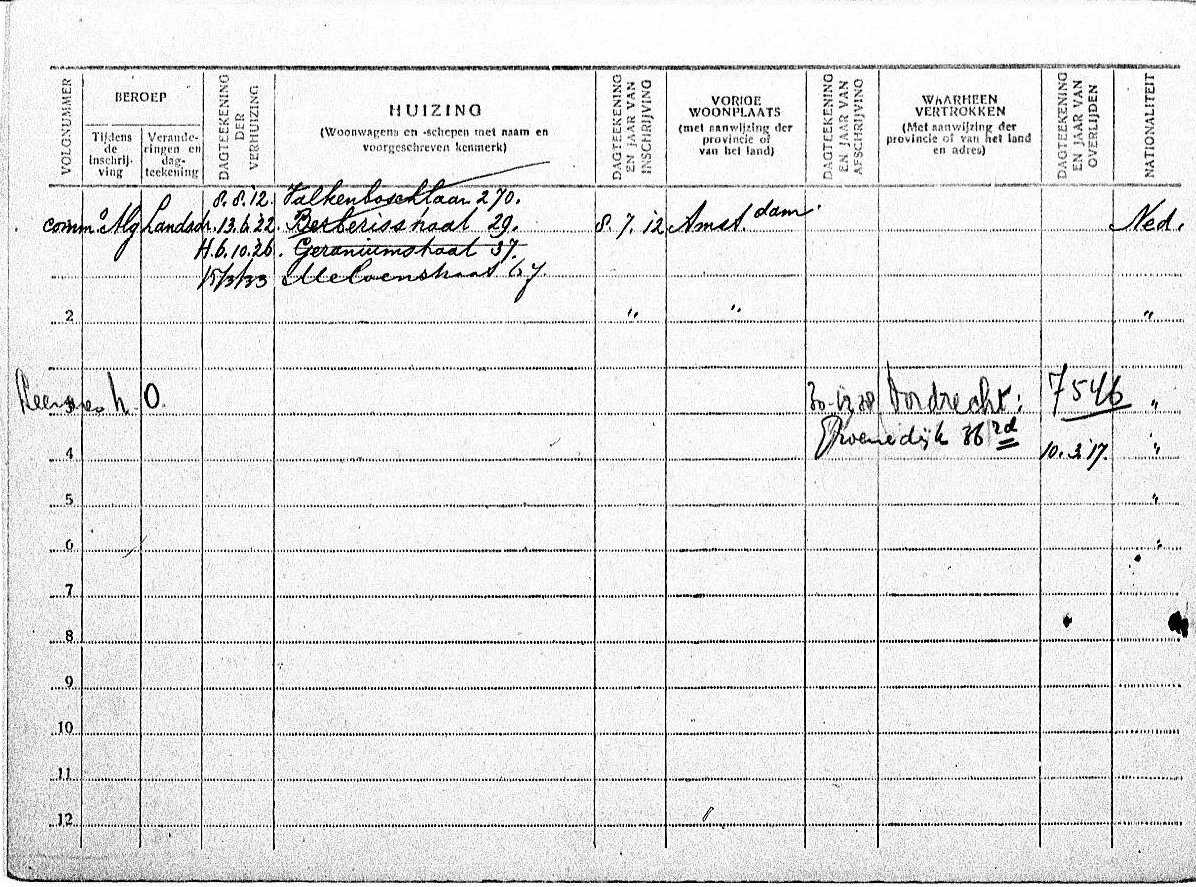 VOLGNUMMER
BEROEP
Tijdens de inschrij-ving
Verande-ringen en dag-teekening
DAGTEEKENING DER VERHUIZING
HUIZING
(Woonwagens en -schepen met naam en
voorgeschreven kenmerk)
DAGTEEKENING EN JAAR VAN INSCHRIJVING
VORIGE WOONPLAATS
(met aanwijzing der provincie of van het land)
DAGTEEKENING EN JAAR VAN AFSCHRIJVING
WAARHEEN VERTROKKEN
(Met aanwijzing der provincie of van het land en adres)
DAGTEEKENING EN JAAR VAN OVERLIJDEN
NATIONALITEIT
8.8.12. Valkenboschlaan 270.
comm. Alg Landsdr. 13.6.22. Berberisstraat 29. 8.7.12 Amstdam. Ned.
H.6.10.26. Geraniumstraat 37.
15/3/33 67
2 " " "
3 h. O. Dordrecht: 7546 "
Groenedijk 36 rd
4 10.3.17. "
5 "
6 "
7
8
9
10
11
12